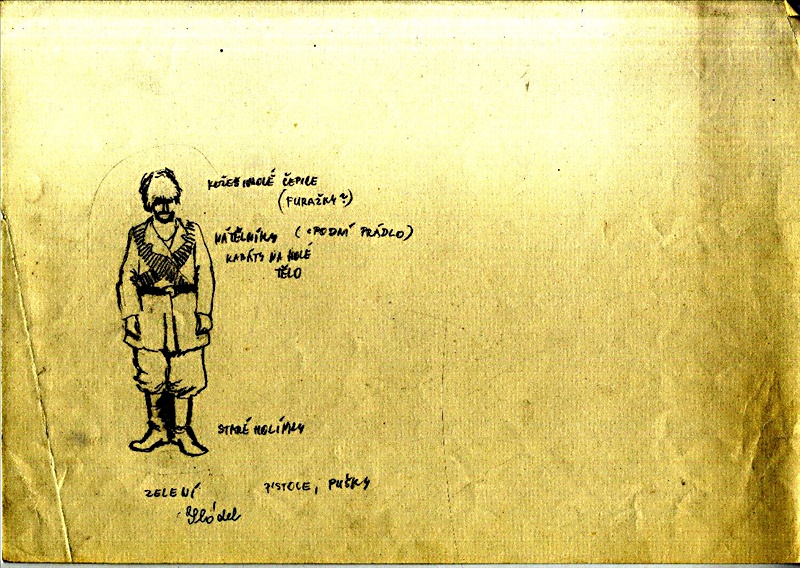 KOŽEŠINOVÉ ČEPICE
(FURAŽKY?)
NÁTĚLNÍKY (SPODNÍ PRÁDLO)
KABÁTY NA HOLÉ
TĚLO
STARÉ HOLÍNKY
ZELENÍ
PISTOLE, PUŠKY